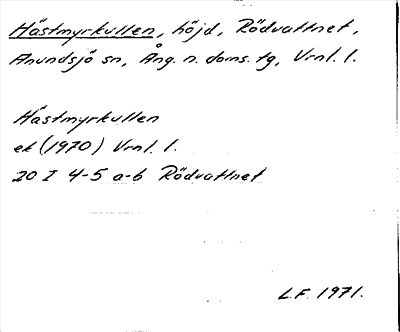 Hästmyrkullen, höjd, Rödvattnet,
Anundsjö sn, Ång. n. doms. tg, Vrnl. l.
Hästmyrkullen
ek (1970) Vrnl. l.
20 I 4-5 a-b Rödvattnet
L.F. 1971.